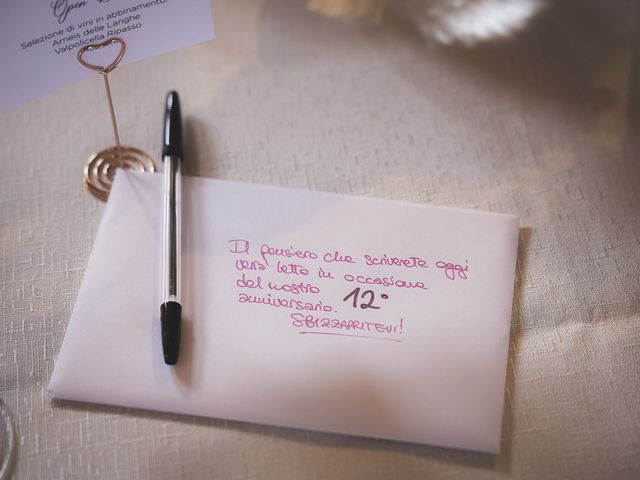 Open
Selezione di vini in abbinamento:
Arneis delle Langhe
Valpolicella Ripasso
Il pensiero che scriverete oggi
verrà letto in occasione
del nostro 12°
anniversario.
SBIZZARRITEVI!